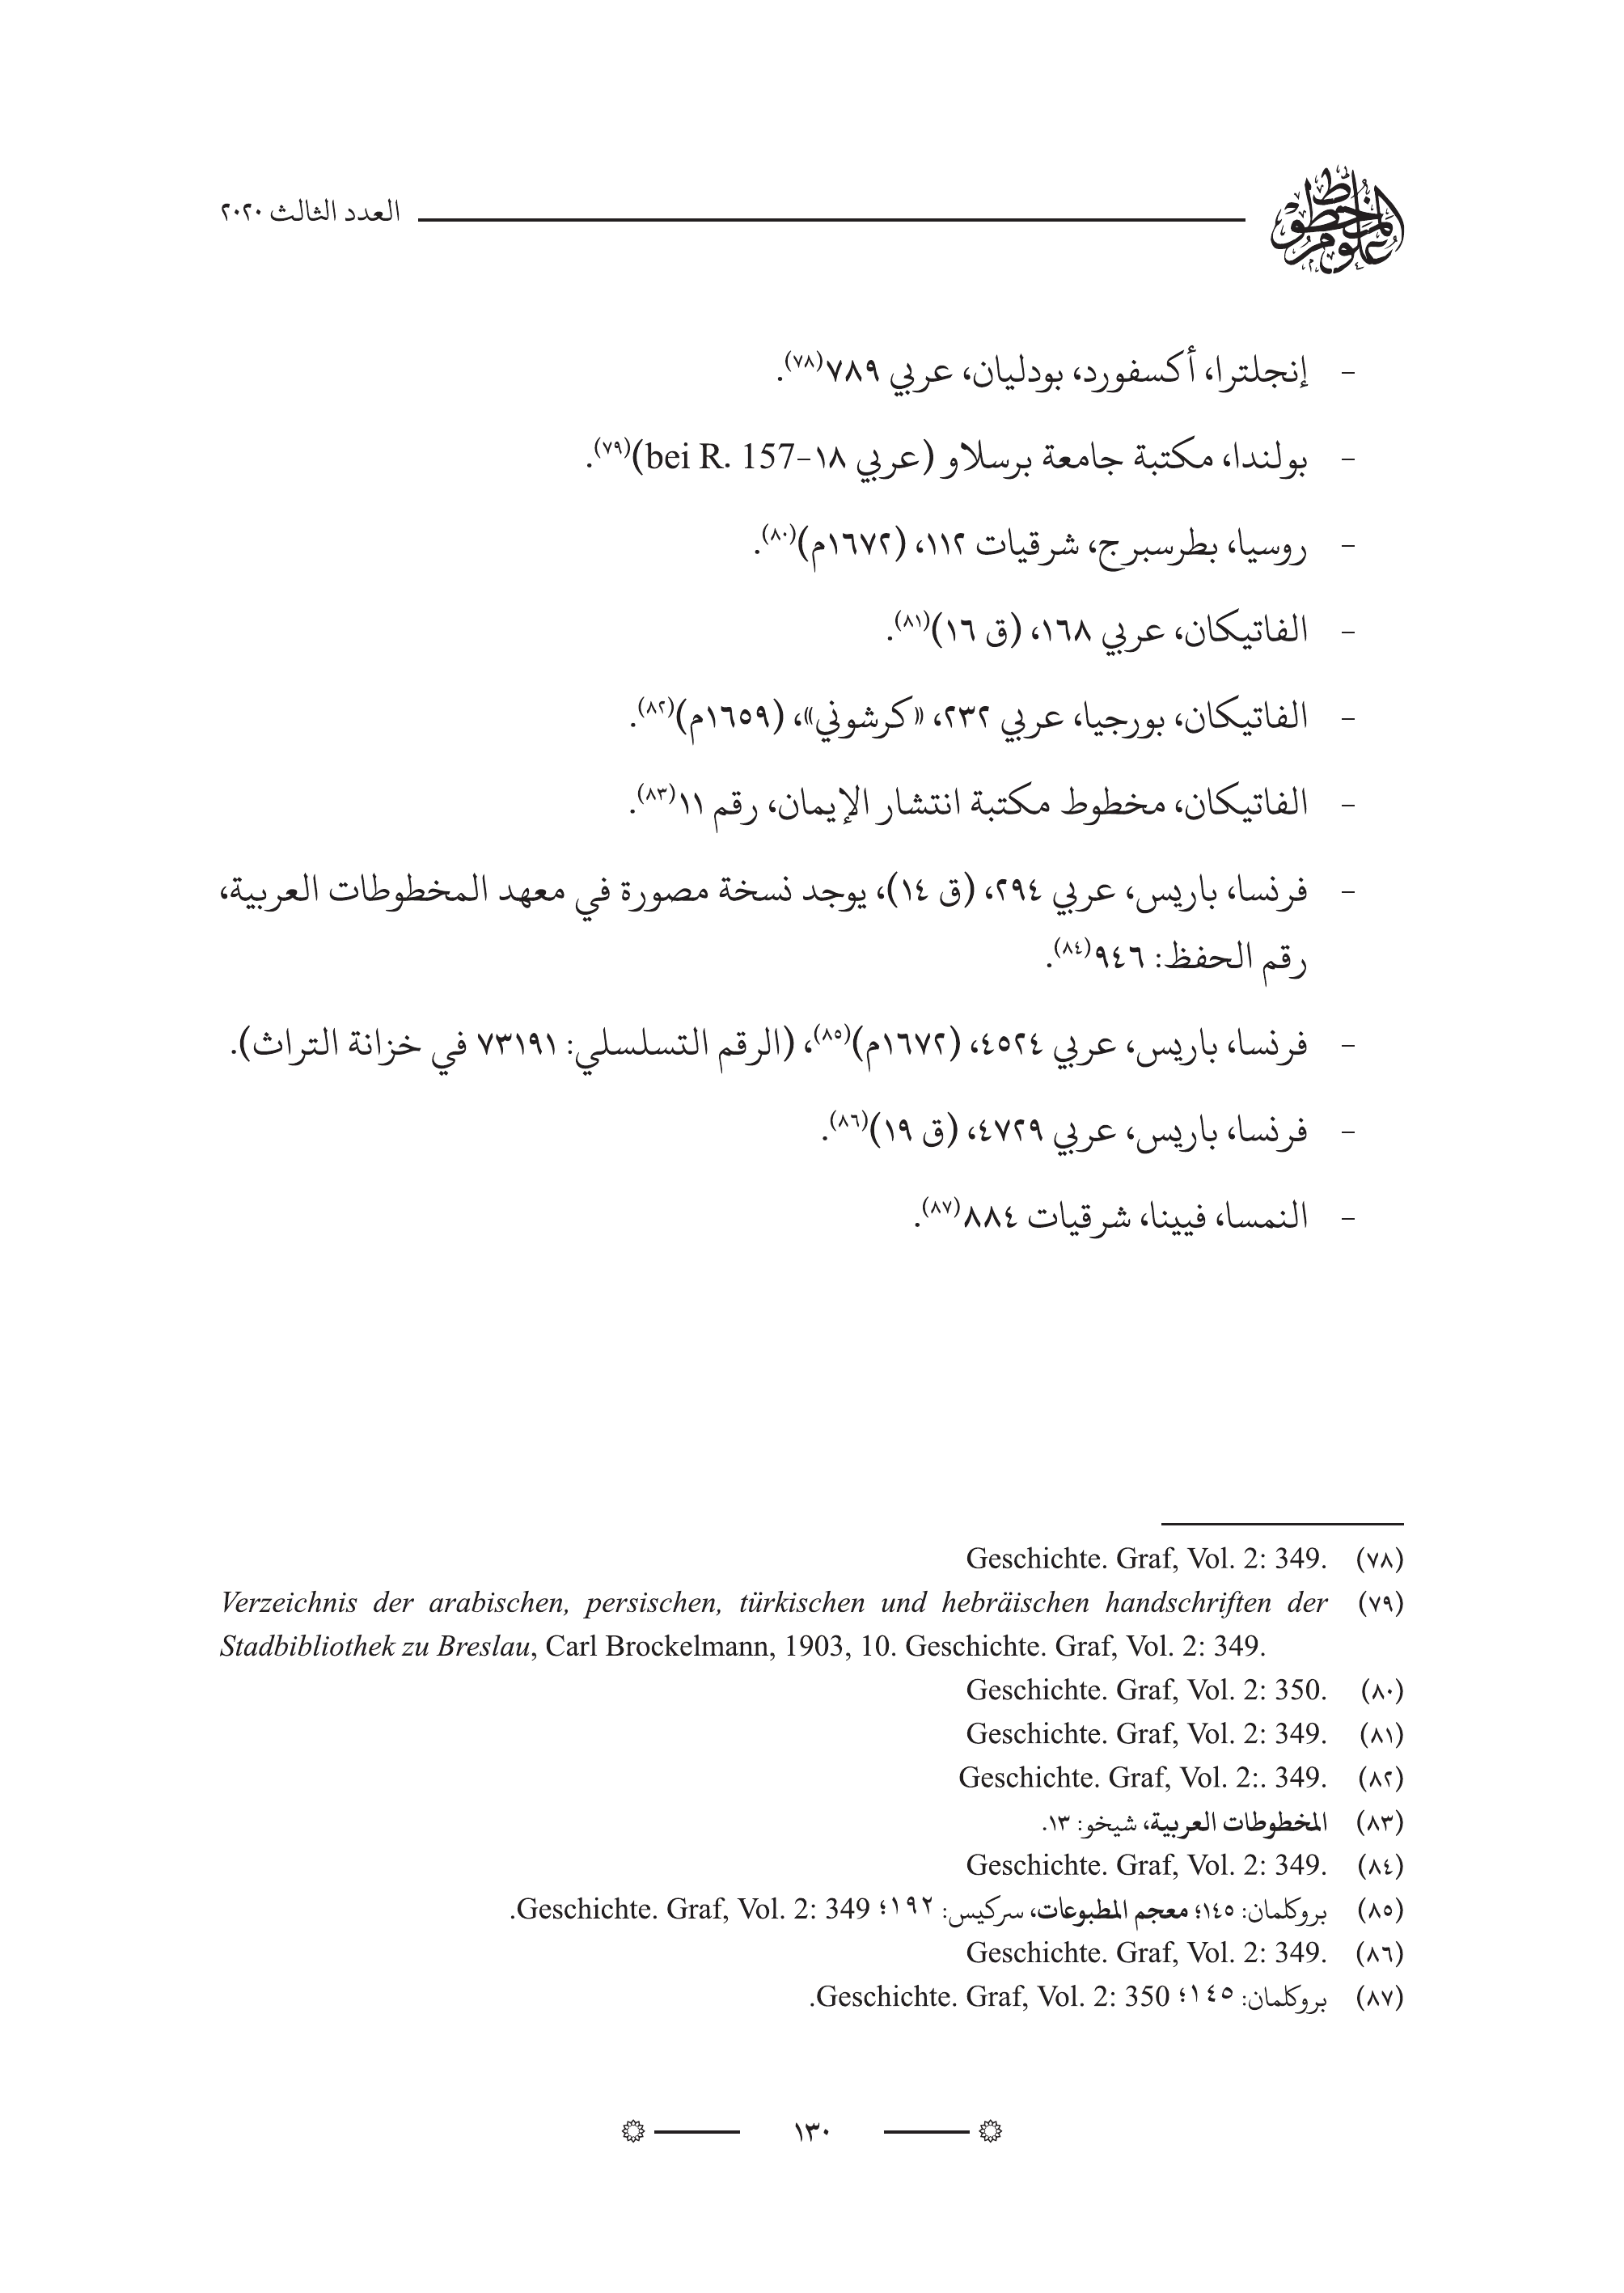 علوم المخطوط
العدد الثالث ٢٠٢٠
- إنجلترا، أكسفورد، بودليان، عربي ٧٨٩(٧٨).
- بولندا، مكتبة جامعة برسلاو (عربي ١٨-157 bei R.)(٧٩).
- روسيا، بطرسبرج، شرقيات ١١٢، (١٦٧٢م)(٨٠).
- الفاتيكان، عربي ١٦٨، (ق ١٦)(٨١).
- الفاتيكان، بورجيا، عربي ٢٣٢، «كرشوني»، (١٦٥٩م)(٨٢).
- الفاتيكان، مخطوط مكتبة انتشار الإيمان، رقم ١١(٨٣).
- فرنسا، باريس، عربي ٢٩٤، (ق ١٤)، يوجد نسخة مصورة في معهد المخطوطات العربية،
رقم الحفظ: ٩٤٦(٨٤).
- فرنسا، باريس، عربي ٤٥٢٤، (١٦٧٢م)(٨٥)، (الرقم التسلسلي: ٧٣١٩١ في خزانة التراث).
- فرنسا، باريس، عربي ٤٧٢٩، (ق ١٩)(٨٦).
- النمسا، فيينا، شرقيات ٨٨٤(٨٧).
(٧٨) Geschichte. Graf, Vol. 2: 349.
(٧٩) Verzeichnis der arabischen, persischen, türkischen und hebräischen handschriften der
Stadbibliothek zu Breslau, Carl Brockelmann, 1903, 10. Geschichte. Graf, Vol. 2: 349.
(٨٠) Geschichte. Graf, Vol. 2: 350.
(٨١) Geschichte. Graf, Vol. 2: 349.
(٨٢) Geschichte. Graf, Vol. 2:. 349.
(٨٣) المخطوطات العربية، شيخو: ١٣.
(٨٤) Geschichte. Graf, Vol. 2: 349.
(٨٥) بروكلمان: ١٤٥؛ معجم المطبوعات، سركيس: ١٩٢؛ Geschichte. Graf, Vol. 2: 349.
(٨٦) Geschichte. Graf, Vol. 2: 349.
(٨٧) بروكلمان: ١٤٥؛ Geschichte. Graf, Vol. 2: 350.
١٣٠